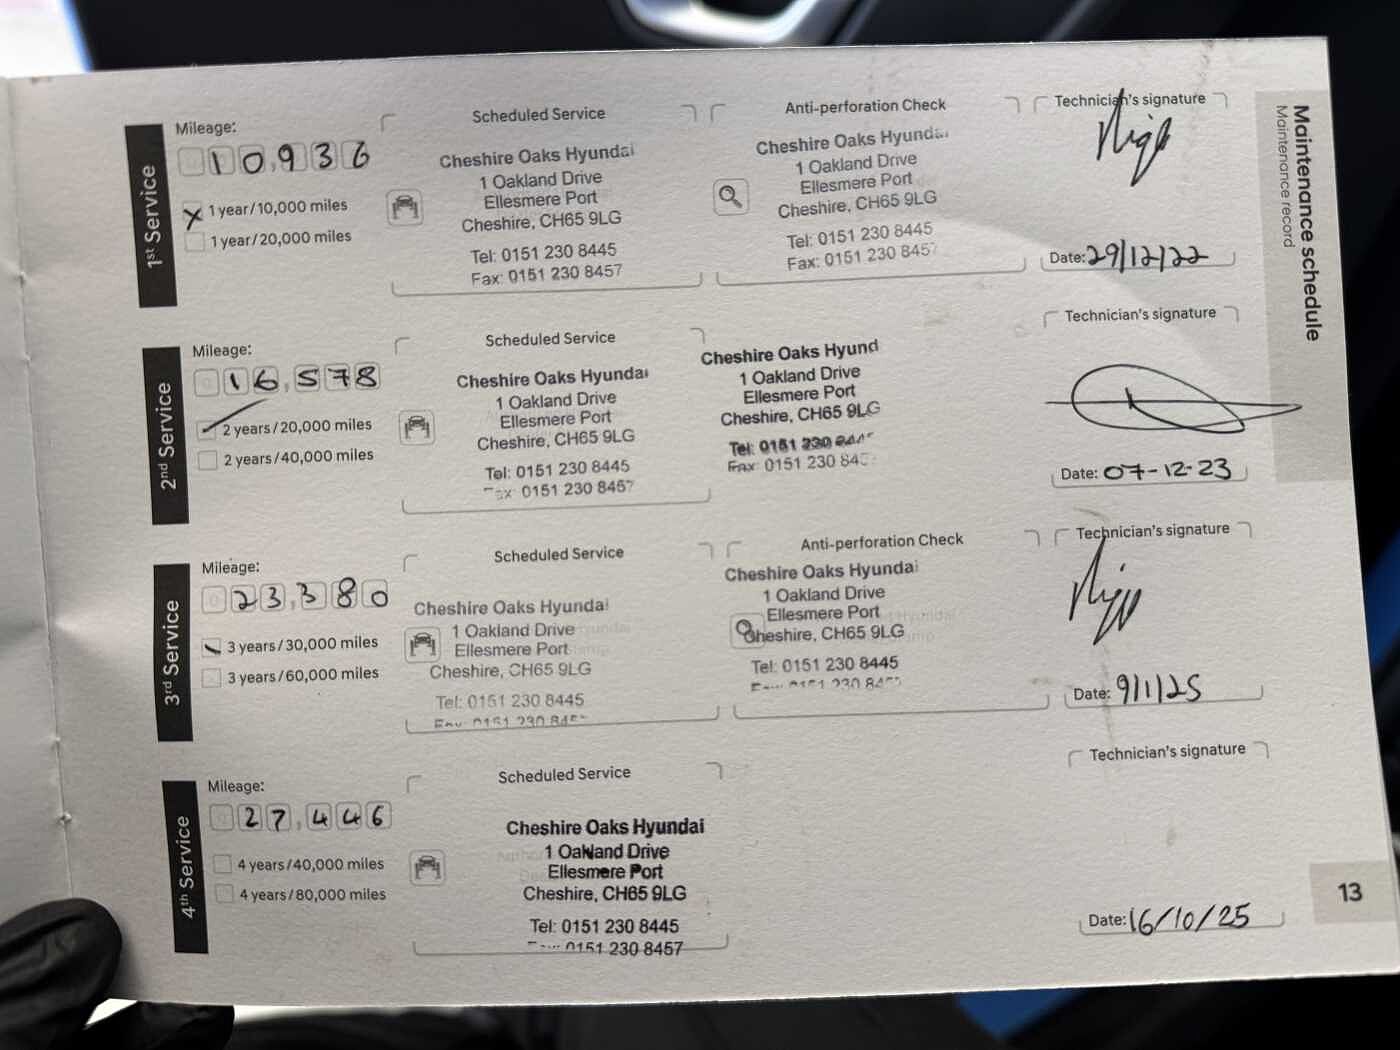 Maintenance schedule
Maintenance record
1st Service
Mileage:
10,936
1 year/10,000 miles
1 year/20,000 miles
Scheduled Service
Cheshire Oaks Hyundai
1 Oakland Drive
Ellesmere Port
Cheshire, CH65 9LG
Tel: 0151 230 8445
Fax: 0151 230 8457
Anti-perforation Check
Cheshire Oaks Hyundai
1 Oakland Drive
Ellesmere Port
Cheshire, CH65 9LG
Tel: 0151 230 8445
Fax: 0151 230 8457
Technician's signature
Date: 29/12/22
2nd Service
Mileage:
16,578
2 years/20,000 miles
2 years/40,000 miles
Scheduled Service
Cheshire Oaks Hyundai
1 Oakland Drive
Ellesmere Port
Cheshire, CH65 9LG
Tel: 0151 230 8445
Fax: 0151 230 8457
Cheshire Oaks Hyund
1 Oakland Drive
Ellesmere Port
Cheshire, CH65 9LG
Tel: 0151 230 844
Fax: 0151 230 845
Technician's signature
Date: 07-12-23
3rd Service
Mileage:
23,380
3 years/30,000 miles
3 years/60,000 miles
Scheduled Service
Cheshire Oaks Hyundai
1 Oakland Drive
Ellesmere Port
Cheshire, CH65 9LG
Tel: 0151 230 8445
Fax: 0151 230 845
Anti-perforation Check
Cheshire Oaks Hyundai
1 Oakland Drive
Ellesmere Port
Cheshire, CH65 9LG
Tel: 0151 230 8445
0151 230 845
Technician's signature
Date: 9/1/25
4th Service
Mileage:
27,446
4 years/40,000 miles
4 years/80,000 miles
Scheduled Service
Cheshire Oaks Hyundai
1 Oakland Drive
Ellesmere Port
Cheshire, CH65 9LG
Tel: 0151 230 8445
0151 230 8457
Technician's signature
Date: 16/10/25
13